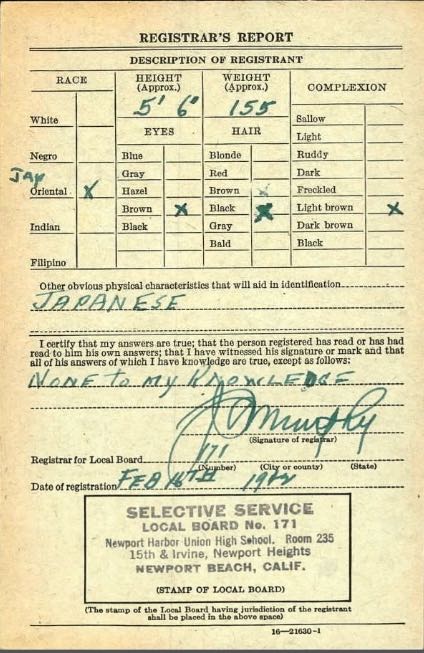 REGISTRAR'S REPORT
DESCRIPTION OF REGISTRANT
RACE
HEIGHT
(Approx.)
WEIGHT
(Approx.)
COMPLEXION
5' 6"
155
White
EYES
HAIR
Sallow
Light
Negro
Blue
Blonde
Ruddy
JAP
Gray
Red
Dark
Oriental X
Hazel
Brown
Freckled
Brown X
Black X
Light brown X
Indian
Black
Gray
Dark brown
Bald
Black
Filipino
Other obvious physical characteristics that will aid in identification
JAPANESE
I certify that my answers are true; that the person registered has read or has had
read to him his own answers; that I have witnessed his signature or mark and that
all of his answers of which I have knowledge are true, except as follows:
NONE TO MY KNOWLEDGE
Murphy
(Signature of registrar)
Registrar for Local Board 171
(Number) (City or county) (State)
Date of registration FEB 16TH 1942
SELECTIVE SERVICE
LOCAL BOARD No. 171
Newport Harbor Union High School. Room 235
15th & Irvine, Newport Heights
NEWPORT BEACH, CALIF.
(STAMP OF LOCAL BOARD)
(The stamp of the Local Board having jurisdiction of the registrant
shall be placed in the above space)
16—21630-1